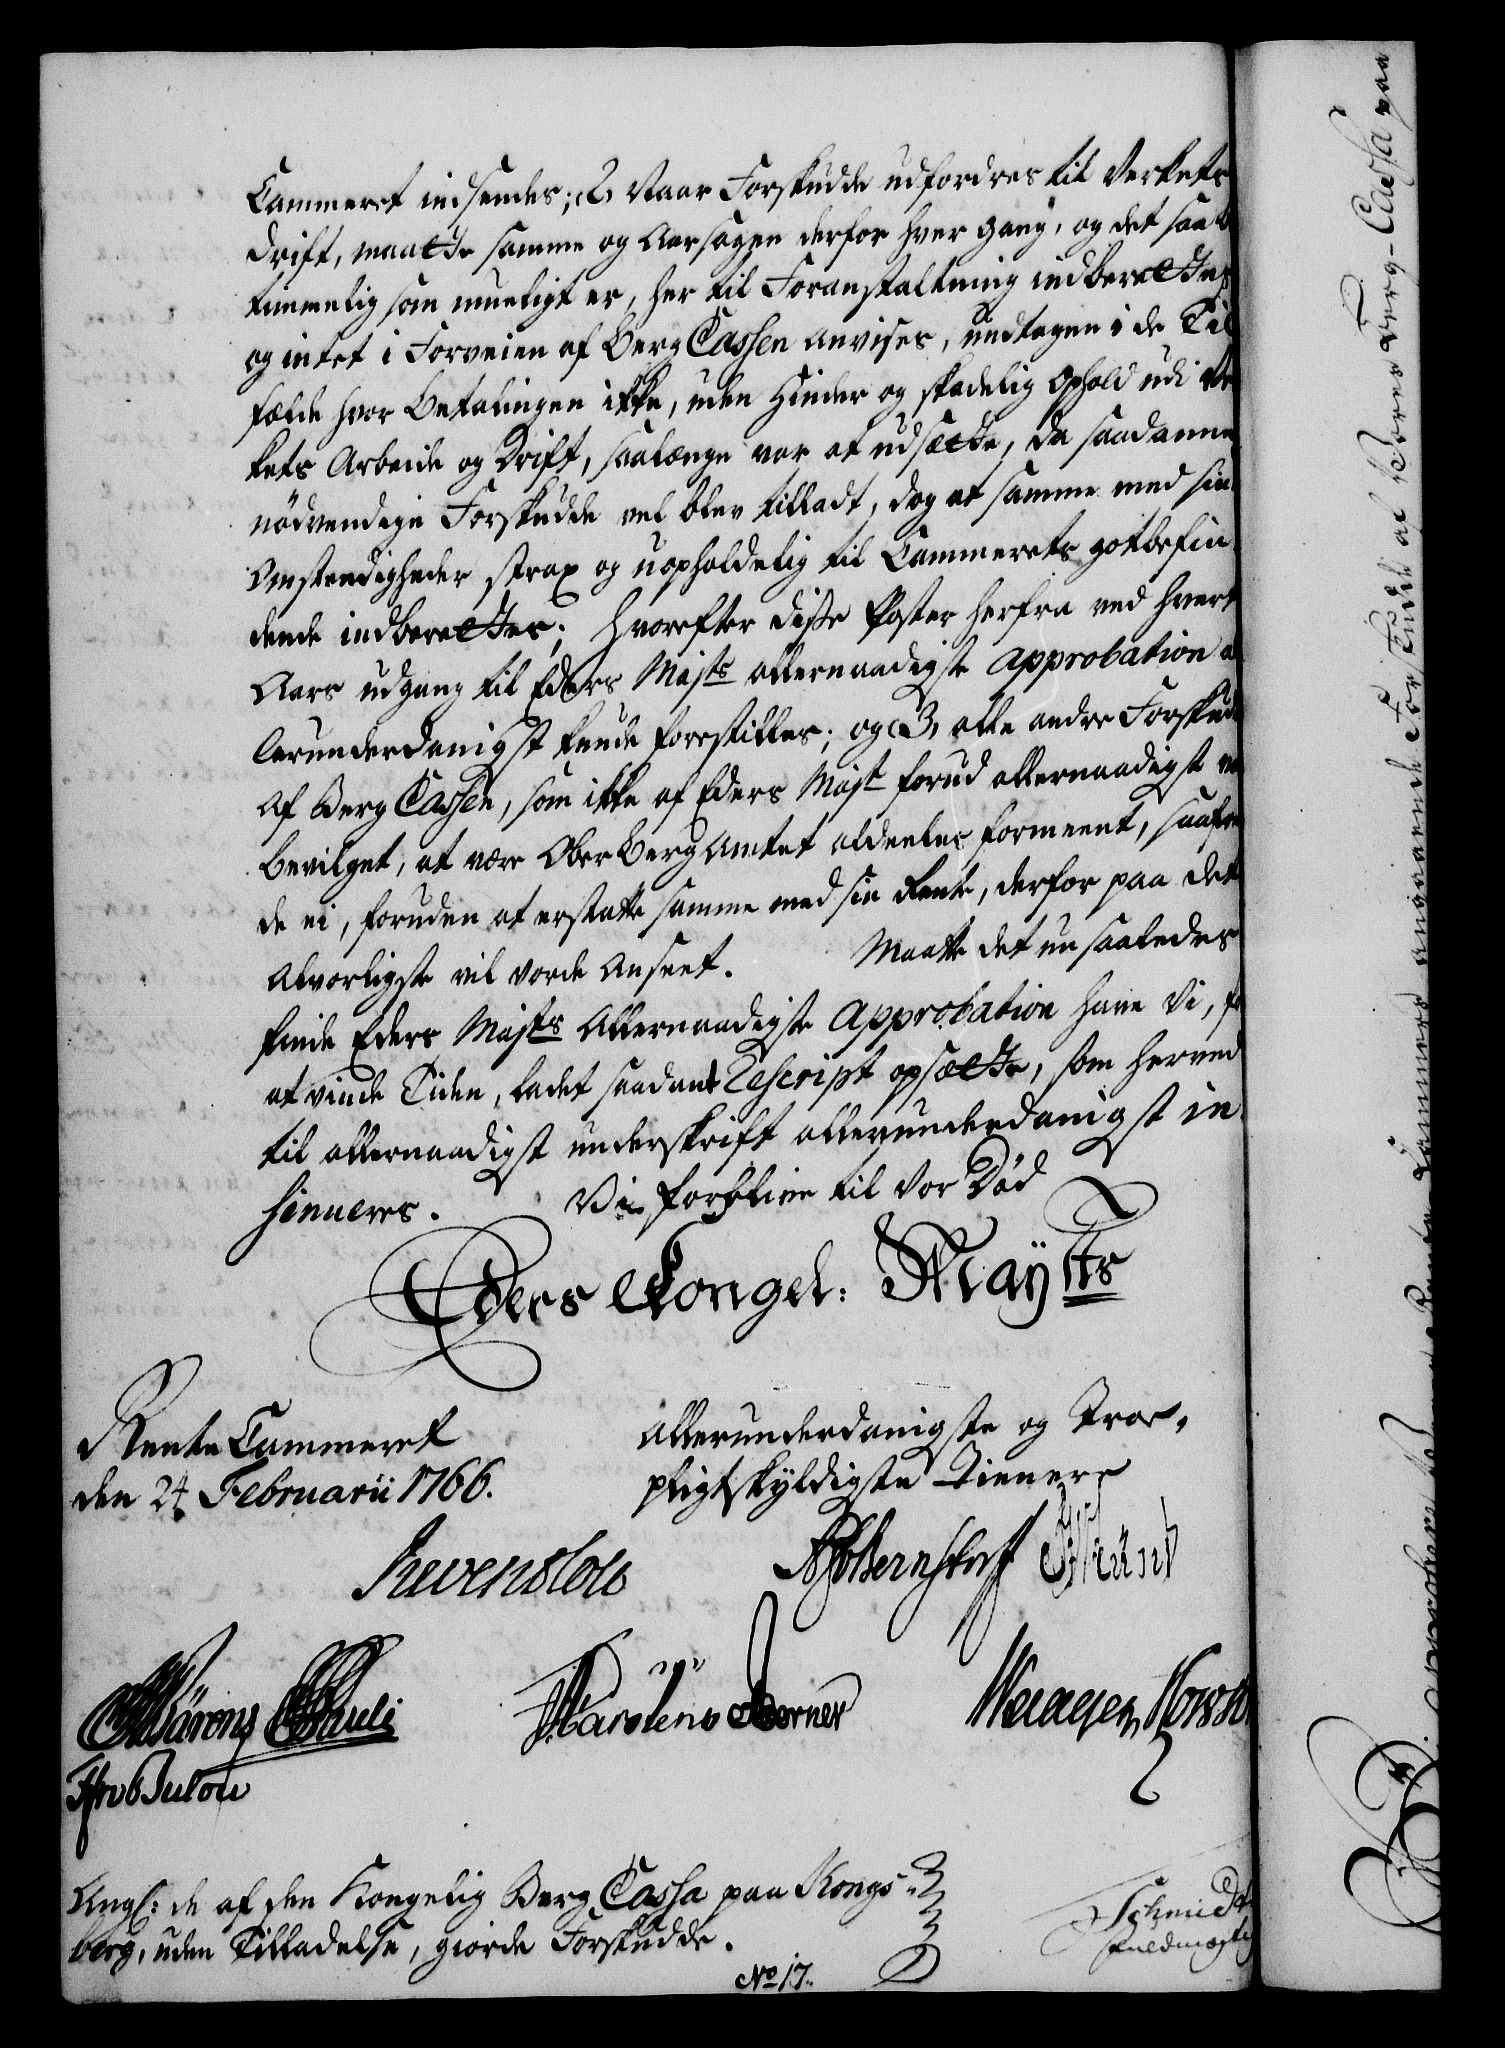 Cammeret indsendes; 2, Naar Forskudde udfordres til Verkets
Drift, maatte samme og Aarsagen derfor hver gang, og det saa
timmelig som mueligt er, her til Foranstaltning indberettes,
og intet i Forveien af Berg Cassen anvises, undtagen i de Til
fælde hvor Betalingen ikke, uden Hinder og skadelig Ophold udi Ver
kets Arbeide og Drift, saalænge var at udsætte, da saadanne
nödvendige Forskudde vel blev tilladt, dog at samme med sine
Omstendigheder strax og uopholdelig til Cammerets gotbefin
dende indberettes; hvorefter disse Poster herfra ved hvert
Aars udgang til Eders Majts allernaadigste Approbation al
lerunderdanigst kunde forestilles; og 3, alle andre Forskud
af Berg Cassen, som ikke af Eders Majt forud allernaadigst var
bevilget, at være OberBergAmtet aldeeles formeent, saafrem
de ei, foruden at erstatte samme med sin Rente, derfor paa det
Alvorligste vil vorde anseet. Maatte det nu saaledes
finde Eders Majts Allernaadigste Approbation have Vi, for
at vinde Tiden, ladet saadant Rescript opsætte, som herved
til allernaadigst underskrift allerunderdanigst in
sinueres. Vi forblive til vor Död
Eders Kongel: Mayts
RenteCammeret
den 24 Februarii 1766.
allerunderdanigste og Troe-
pligtskyldigste Tienere
Reventlow
AP Bernstorff
Bärens Pauli
Karstens Berner
Waagen
Bulou
Angl: de af den Kongelig Berg Cassa paa Kongs-
berg, uden Tilladelse, giorde Forskudde.
No 17.
Schmidt
Fuldmægtig
Rente Cammeret angaaende Forskudde af Berg-Cassa paa